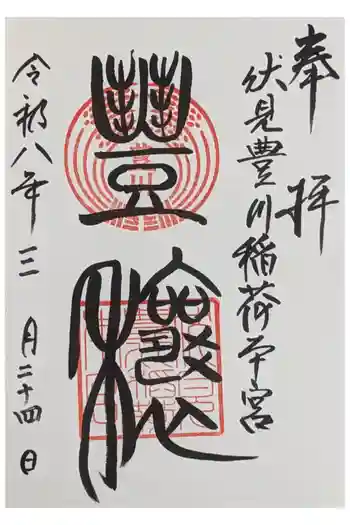 奉拝
伏見豊川稲荷本宮
豊穣
令和八年三月二十四日